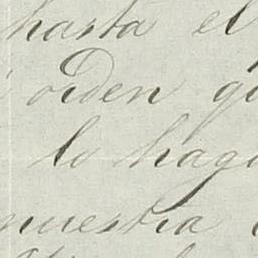 hasta el
orden
lo haga
nuestra